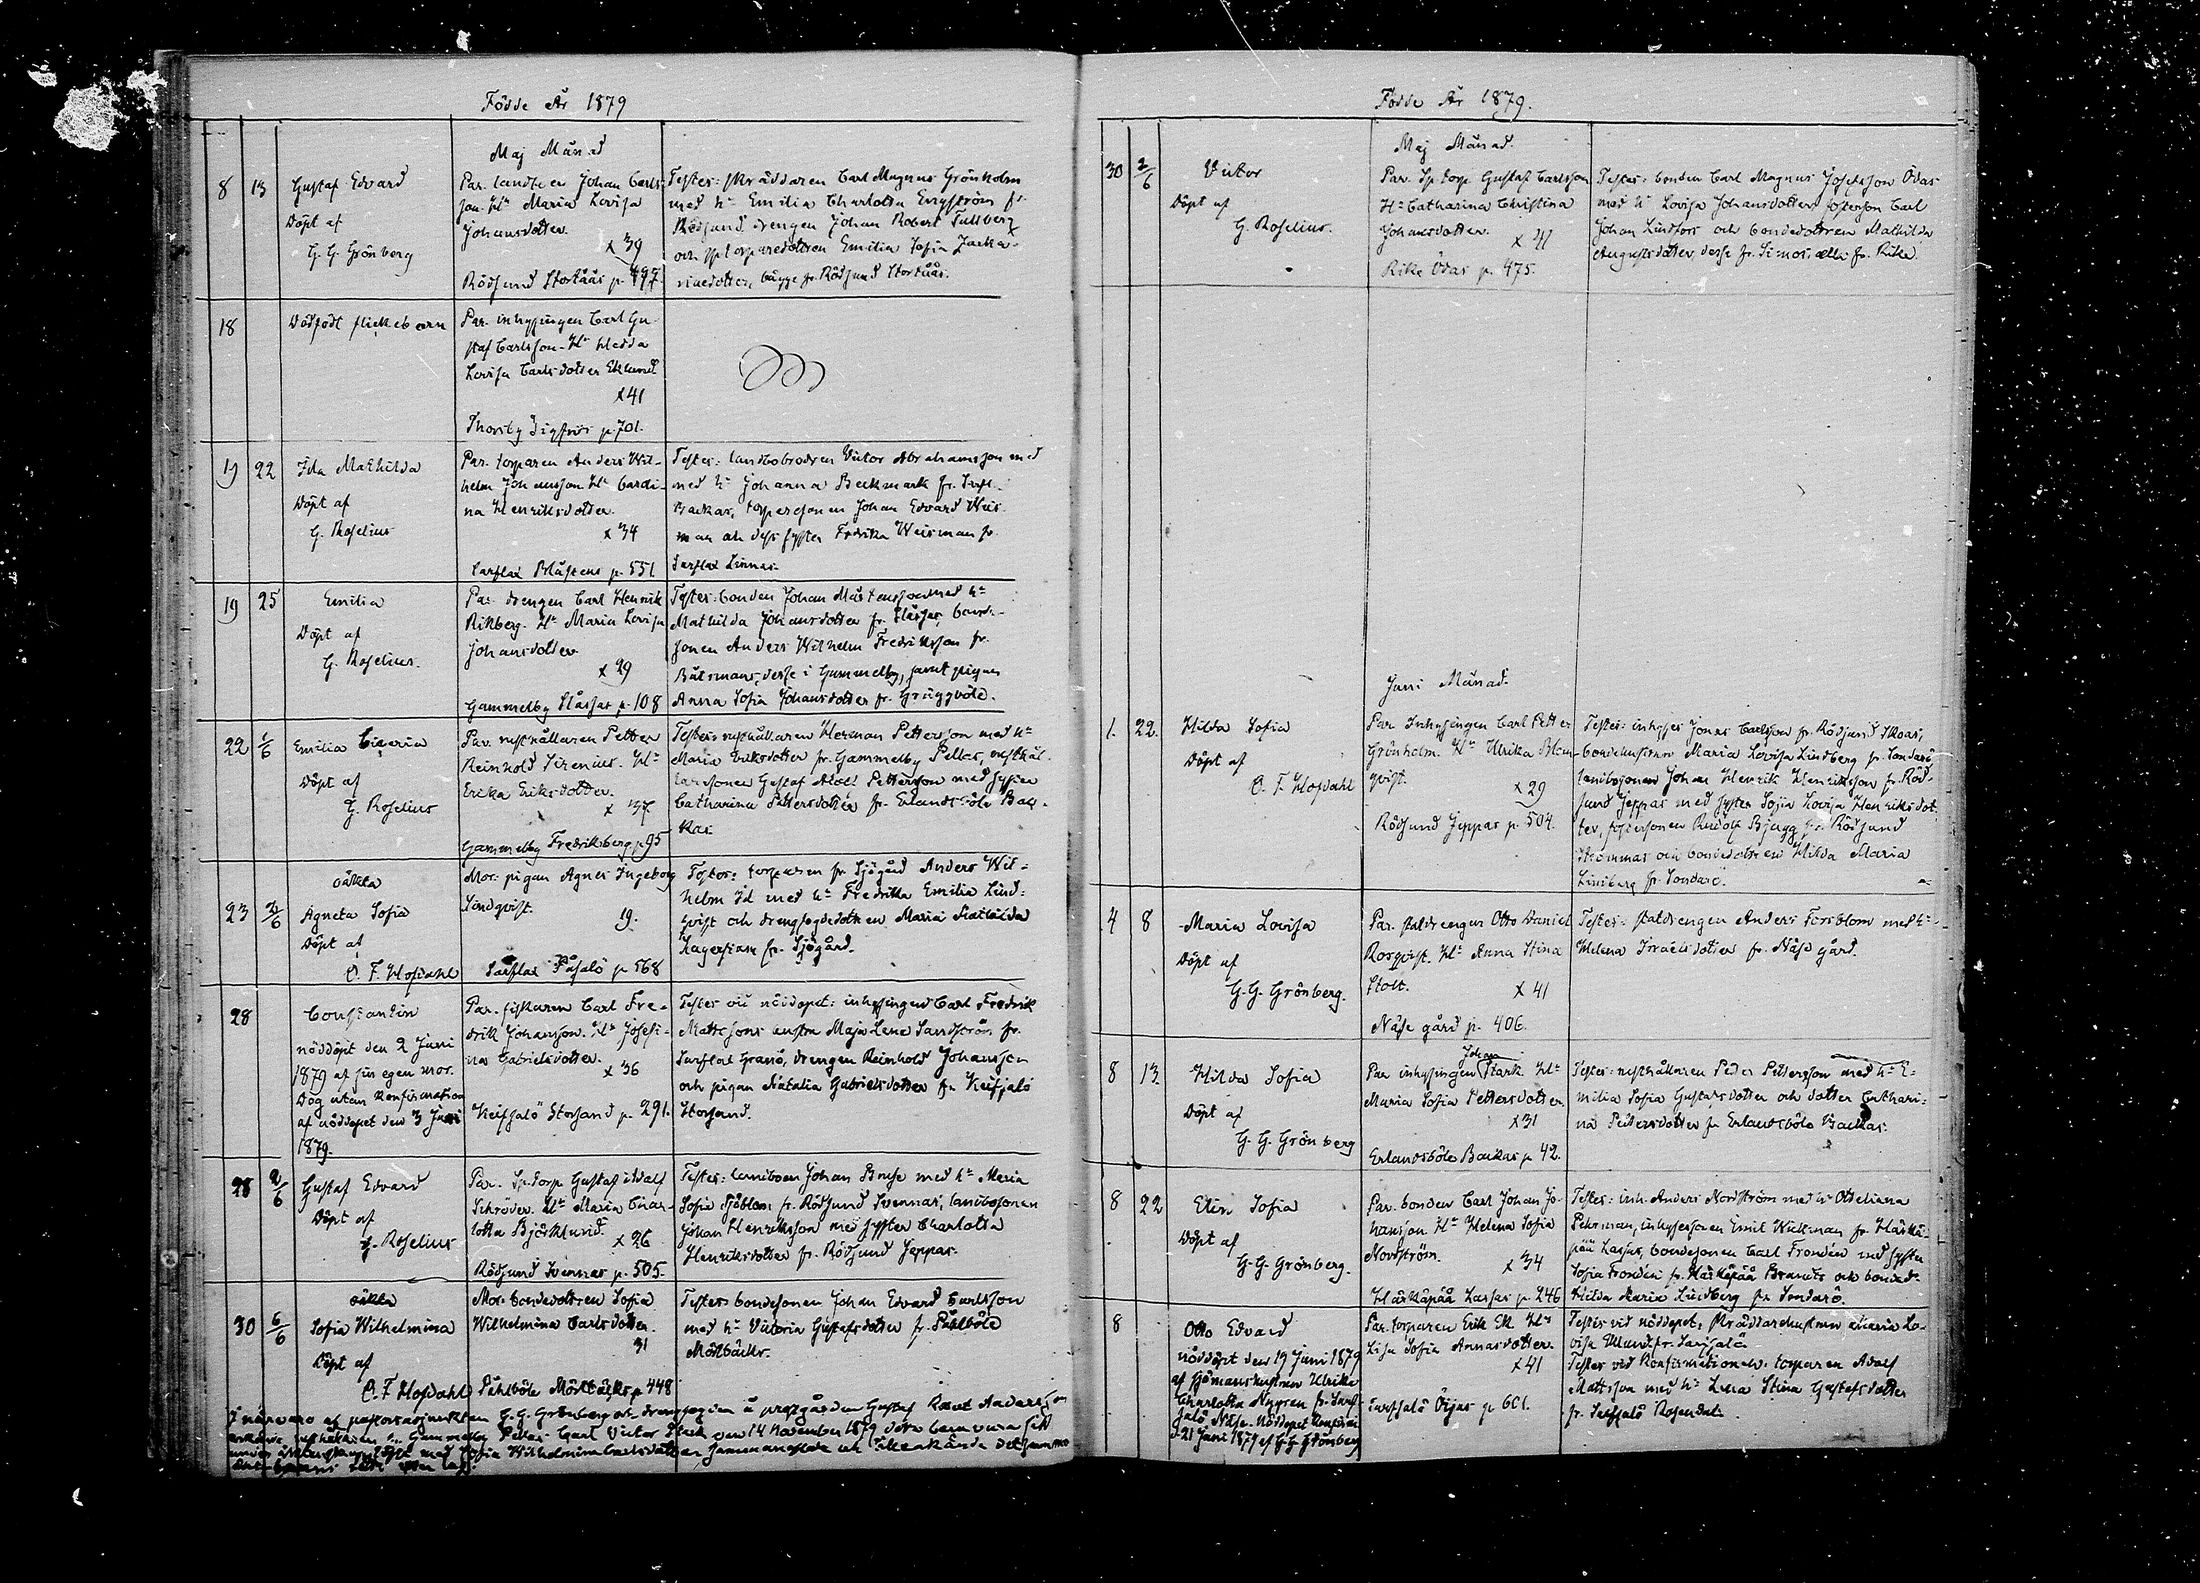 Födde År 1879
Maj Månad
8 13 Gustaf Edvard
Döpt af
G. G. Grönberg
Par. landb:en Johan Carls-
son. H:u Maria Lovisa
Johansdotter.
x 39
Rödsund Storkåås p. 497.
Testes: skräddaren Carl Magnus Grönholm
med h:u Emilia Charlotta Engström fr.
Rödsund, drengen Johan Robert Tullberg
och sp.torparedottren Emilia Sofia Zacha-
riaedotter, bägge fr. Rödsund Storkåås.
18 Dödfödt flickebarn
Par. inhysingen Carl Gu-
staf Carlsson. H:u Hedda
Lovisa Carlsdotter Eklund.
x 41
Thorsby Sigfrids p. 701.
19 22 Ida Mathilda
Döpt af
G. Roselius
Par. torparen Anders Wil-
helm Johansson H:u Caroli-
na Henriksdotter.
x 34
Sarflax Blåstens p. 551
Testes: landbobrodren Victor Abrahamsson med
med h:u Johanna Beckmark fr.
Backas, torparesonen Johan Edvard Weis-
man och dess syster Fredrika Weisman fr.
Sarflax Linnas.
19 25 Emilia
Döpt af
G. Roselius.
Par. drengen Carl Henrik
Rikberg. H:u Maria Lovisa
Johansdotter
x 29
Gammelby Slåsas p. 108
Testes: bonden Johan Mårtensson med h:u
Mathilda Johansdotter fr. Slåsas, bonde-
sonen Anders Wilhelm Fredriksson fr.
Båtsmans, desse i Gammelby, samt pigan
Anna Sofia Johansdotter fr. Gruggböle.
22 1/6 Emilia
Döpt af
G. Roselius
Par. rusthållaren Petter
Reinhold Sirenius. H:u
Erika Eriksdotter.
x 37
Gammelby Fredriksberg p. 95
Testes: rusthållaren Herman Pettersson med h:u
Maria Eriksdotter fr. Gammelby Pellas, rusthål-
laresonen Gustaf Adolf Pettersson med syster
Catharina Pettersdotter fr. Erlandsböle Bac-
kas.
oäkta
23 2/6 Agneta Sofia
Döpt af
O. F. Hofdahl
Mor: pigan Agnes Ingeborg
Lindqvist.
19.
Sarflax Påsalö p. 568
Testes: torparen fr. Sjögård Anders Wil-
helm Id med h:u Fredrika Emilia Lind-
qvist och drengfogdedottren Maria Mathilda
Lagerstam fr. Sjögård.
28 Constantin
nöddöpt den 2 Juni
1879 af sin egen mor.
Dog utan konfirmation
af nöddopet den 3 Juni
1879.
Par. fiskaren Carl Fre-
drik Johansson. H:u Josefi-
na Gabrielsdotter.
x 36
Keifsalö Storsand p. 291.
Testes vid nöddopet: inhysingen Carl Fredrik
Mattssons hustru Maja Lena Sandström fr.
Sarflax Granö, drengen Reinhold Johansson
och pigan Natalia Gabrielsdotter fr. Keifsalö
Storsand.
28 2/6 Gustaf Edvard
Döpt af
G. Roselius
Par. Sp.torp Gustaf Adolf
Schröder. H:u Maria Char-
lotta Björklund.
x 26
Rödsund Svennas p. 505.
Testes: landboen Johan Buse med h:u Maria
Sofia Sjöblom fr. Rödsund Svennas, landbosonen
Johan Henriksson med syster Charlotta
Henriksdotter fr. Rödsund Jeppas.
oäkta
30 6/6 Sofia Wilhelmina
Döpt af
O. F. Hofdahl
Mor: bondedottren Sofia
Wilhelmina Carlsdotter.
31
Påhlböle Mörtbäcks p. 448
Testes: bondesonen Johan Edvard Carlsson
med h:u Victoria Gustafsdotter fr. Påhlböle
Mörtbäcks.
I närvaro af pastorsadjunkten G. G. Grönberg och drengfogden å prestgården Gustaf Knut Andersson
erkände rusthållaren i Gammelby Pellas Carl Victor den 14 November 1879 detta barn vara sitt
med Sofia Wilhelmina Carlsdotter sammanaflade och

Födde År 1879.
Maj Månad.
30 2/6 Victor
Döpt af
G. Roselius.
Par. Sp.torp. Gustaf Carlsson
H:u Catharina Christina
Johansdotter.
x 41
Rike Ödas p. 475.
Testes: bonden Carl Magnus Josefsson Ödas
med h:u Lovisa Johansdotter, fosterson Carl
Johan Lindfors och bondedottren Mathilda
Augustsdotter, desse fr. Simos, alla fr. Rike.
Juni Månad.
1. 22. Hilda Sofia
Döpt af
O. F. Hofdahl
Par. Inhysingen Carl Petter
Grönholm. H:u Ulrika Blom-
qvist.
x 29
Rödsund Jeppas p. 504.
Testes: inhyses Jonas Carlsson fr. Rödsund Skoas,
bondehustrun Maria Lovisa Lindberg fr. Sondarö,
landbosonen Johan Henrik Henriksson fr. Röd-
sund Jeppas med syster Sofia Lovisa Henriksdot-
ter, fostersonen Rudolf Bjugg fr. Rödsund
Strömmas och bondedottren Hilda Maria
Lindberg fr. Sondarö.
4 8 Maria Lovisa
Döpt af
G. G. Grönberg.
Par. staldrengen Otto Daniel
Rosqvist. H:u Anna Stina
Stolt.
x 41
Näse gård p. 406.
Testes: staldrengen Anders Forsblom med h:u
Helena Israelsdotter fr. Näse gård.
8 13. Hilda Sofia
Döpt af
G. G. Grönberg
Johan
Par inhysingen Stark H:u
Maria Sofia Pettersdotter.
x 31
Erlandsböle Backas p. 42.
Testes: rusthållaren Peder Pettersson med h:u E-
milia Sofia Gustafsdotter och dotter Cathari-
na Pettersdotter fr Erlandsböle Backas.
8 22 Elin Sofia
Döpt af
G. G. Grönberg.
Par. bonden Carl Johan Jo-
hansson. H:u Helena Sofia
Nordström.
x 34
Härkäpää Lassas p. 246
Testes: inh. Anders Nordström med h:u Otteliana
Pehrman, inhysessonen Emil Wickman fr. Härkä-
pää Lassas, bondesonen Carl Frondén med syster
Sofia Frondén fr. Härkäpää Brands och bonded:
Hilda Maria Lindberg fr. Sondarö.
8 Otto Edvard
nöddöpt den 19 Juni 1879
af sjömanshustrun Ulrika
Charlotta Nygren fr. Sarf-
salö Näse. Nöddopet konfirm.
d. 21 Juni 1879 af G. G. Grönberg
Par. torparen Erik Ek H:u
Lisa Sofia Annasdotter.
x 41
Sarfsalö Öijas p. 601.
Testes vid nöddopet: skräddarehustrun Maria Lo-
visa Eklund fr. Sarfsalö
Testes vid konfirmationen: torparen Adolf
Mattsson med h:u Lena Stina Gustafsdotter
fr. Sarfsalö Rosendal.